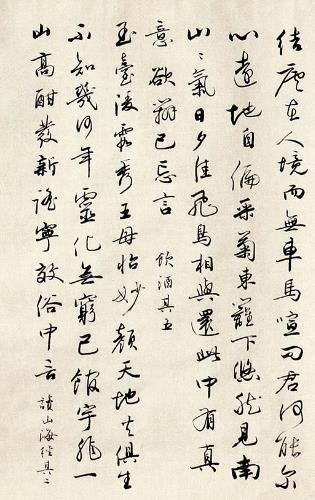 结廬在人境而無車馬喧问君何能尔
心遠地自偏采菊東籬下悠然見南
山〻氣日夕佳飛鳥相與還此中有真
意欲辨已忘言 飲酒其五
玉臺凌霞秀王母怡妙顏天地共俱生
不知幾何年靈化無窮已館宇非一
山高酣發新謠寧效俗中言 讀山海經其二